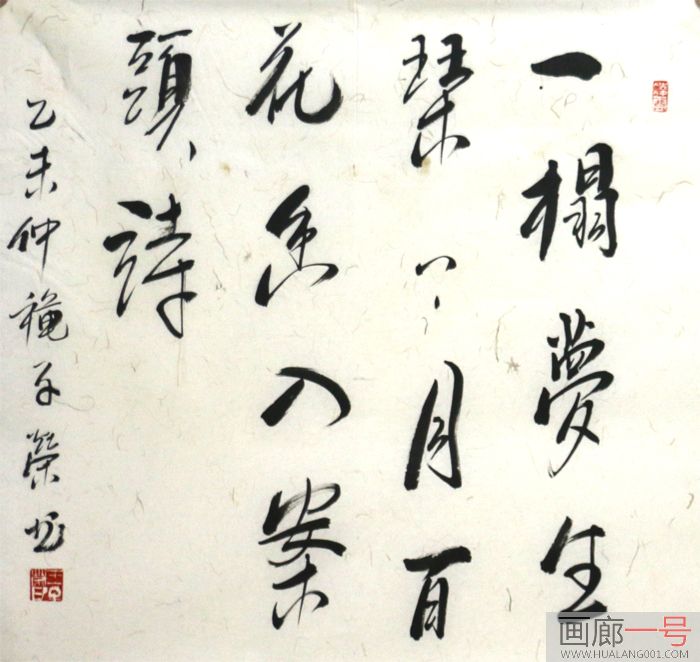 一榻夢生
琴上月百
花香入案
頭詩
乙未仲穐子榮书
画廊一号
WWW.HUALANG001.COM